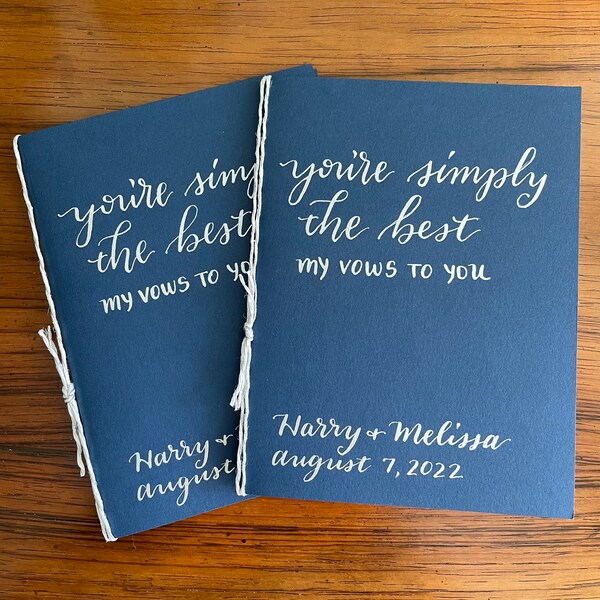 you're simp
the best
MY VOWS TO YO
Harry +
august
you're simply
the best
MY VOWS TO YOU
Harry + Melissa
august 7, 2022